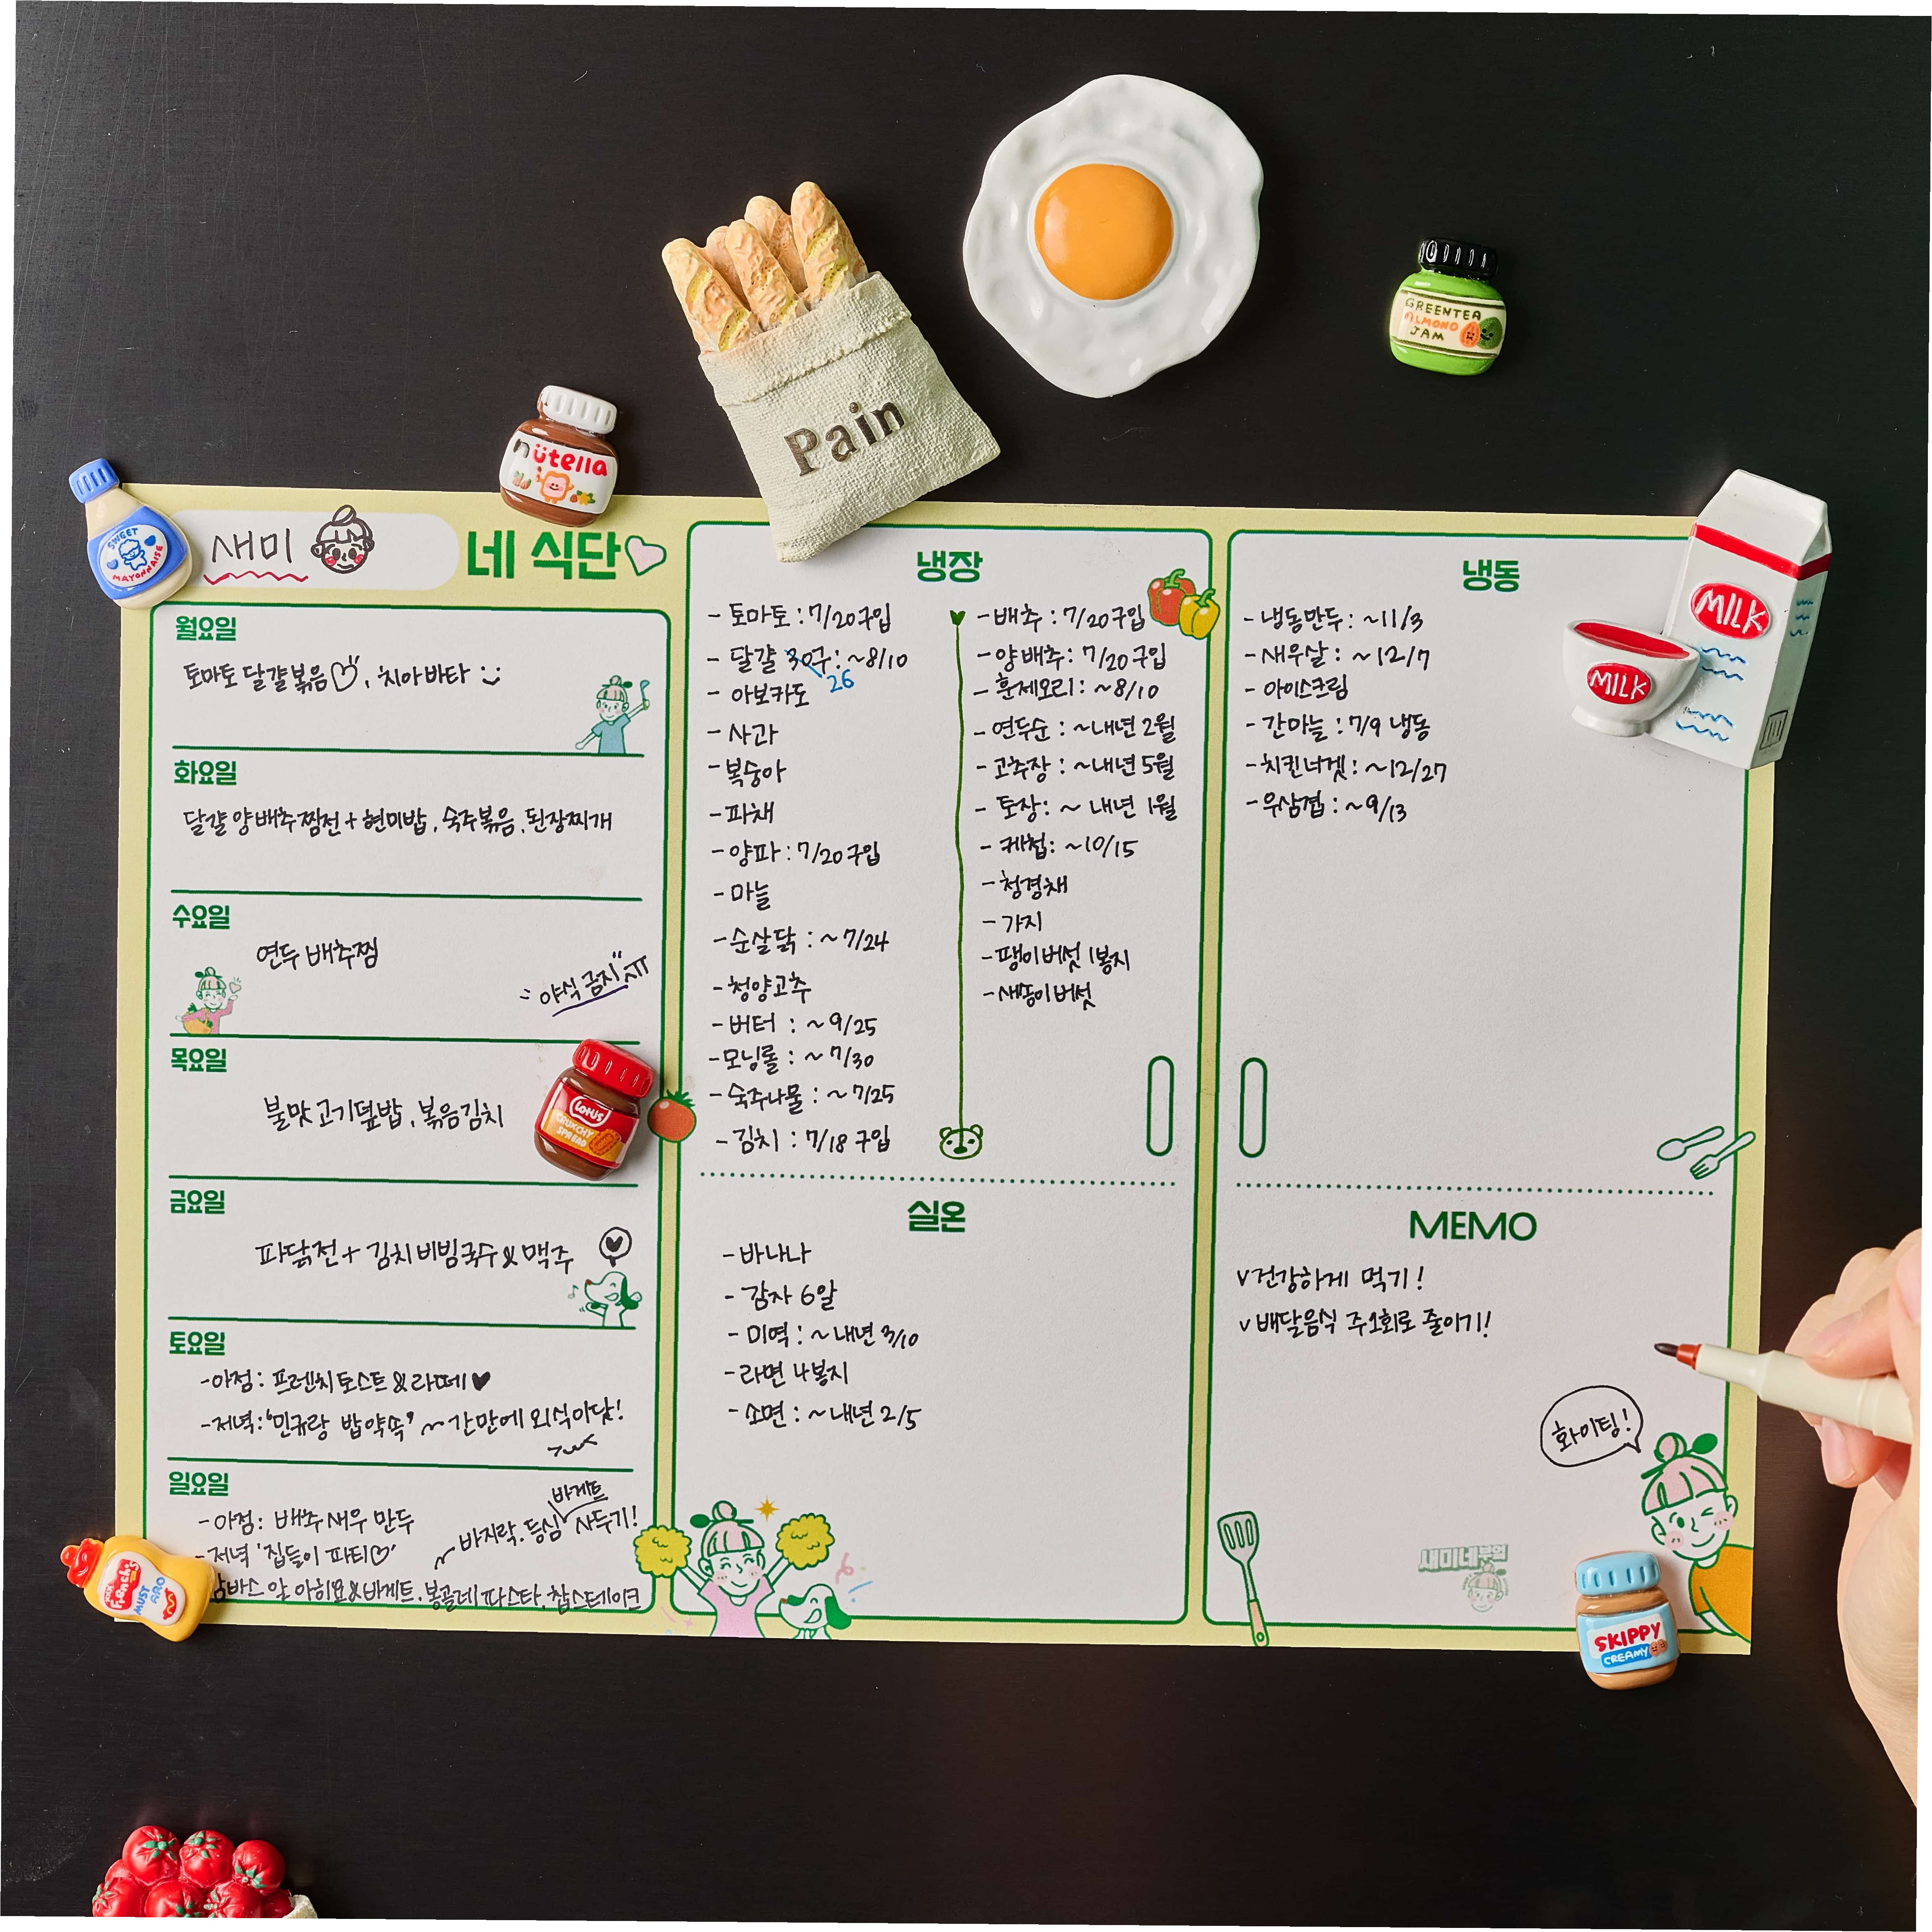 GREENTEA
ALMOND
JAM
Pain
nutella
SWEET
MAYONNAISE
MILK
MILK
새미 네 식단
월요일
토마토 달걀볶음, 치아바타
화요일
달걀 양배추찜전 + 현미밥, 숙주볶음, 된장찌개
수요일
연두 배추찜
"야식 금지" ㅠㅠ
목요일
불맛 고기덮밥, 볶음김치
Lotus
CRUNCHY
SPREAD
금요일
파닭전 + 김치비빔국수 & 맥주
토요일
- 아점: 프렌치토스트 & 라떼♥
- 저녁: '민규랑 밥약속' ~ 간만에 외식이닷!
일요일
- 아점: 배추새우 만두
- 저녁 '집들이 파티♡'
~ 바지락, 등심 바게트 사두기!
알 아히요 & 바게트, 봉골레 파스타, 찹스테이크
냉장
- 토마토 : 7/20구입
- 달걀 30구 : ~8/10
26
- 아보카도
- 사과
- 복숭아
- 파채
- 양파 : 7/20 구입
- 마늘
- 순살닭 : ~ 7/24
- 청양고추
- 버터 : ~ 9/25
- 모닝롤 : ~ 7/30
- 숙주나물 : ~ 7/25
- 김치 : 7/18 구입
- 배추 : 7/20 구입
- 양배추 : 7/20 구입
- 훈제오리 : ~8/10
- 연두순 : ~내년 2월
- 고추장 : ~내년 5월
- 토장 : ~ 내년 1월
- 케첩 : ~10/15
- 청경채
- 가지
- 팽이버섯 1봉지
- 새송이버섯
실온
- 바나나
- 감자 6알
- 미역 : ~ 내년 3/10
- 라면 4봉지
- 소면 : ~ 내년 2/5
냉동
- 냉동만두 : ~11/3
- 새우살 : ~12/7
- 아이스크림
- 간마늘 : 7/9 냉동
- 치킨너겟 : ~12/27
- 우삼겹 : ~9/13
MEMO
v 건강하게 먹기!
v 배달음식 주1회로 줄이기!
화이팅!
새미네부엌
French's
MUST
ARD
SKIPPY
CREAMY